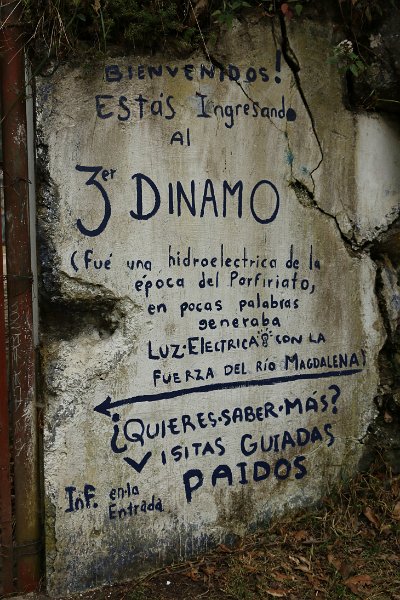 BIENVENIDOS!
EStáS Ingresando
Al
3er DINAMO
(Fué una hidroelectrica de la
época del Porfiriato,
en pocas palabras
generaba
LUZ-ELECTRICA CON LA
FUERZA DEL RÍO MAGDALENA)
¿QUIERES-SABER-MÁS?
VISITAS GUIADAS
PAIDOS
InF. en-la
Entrada